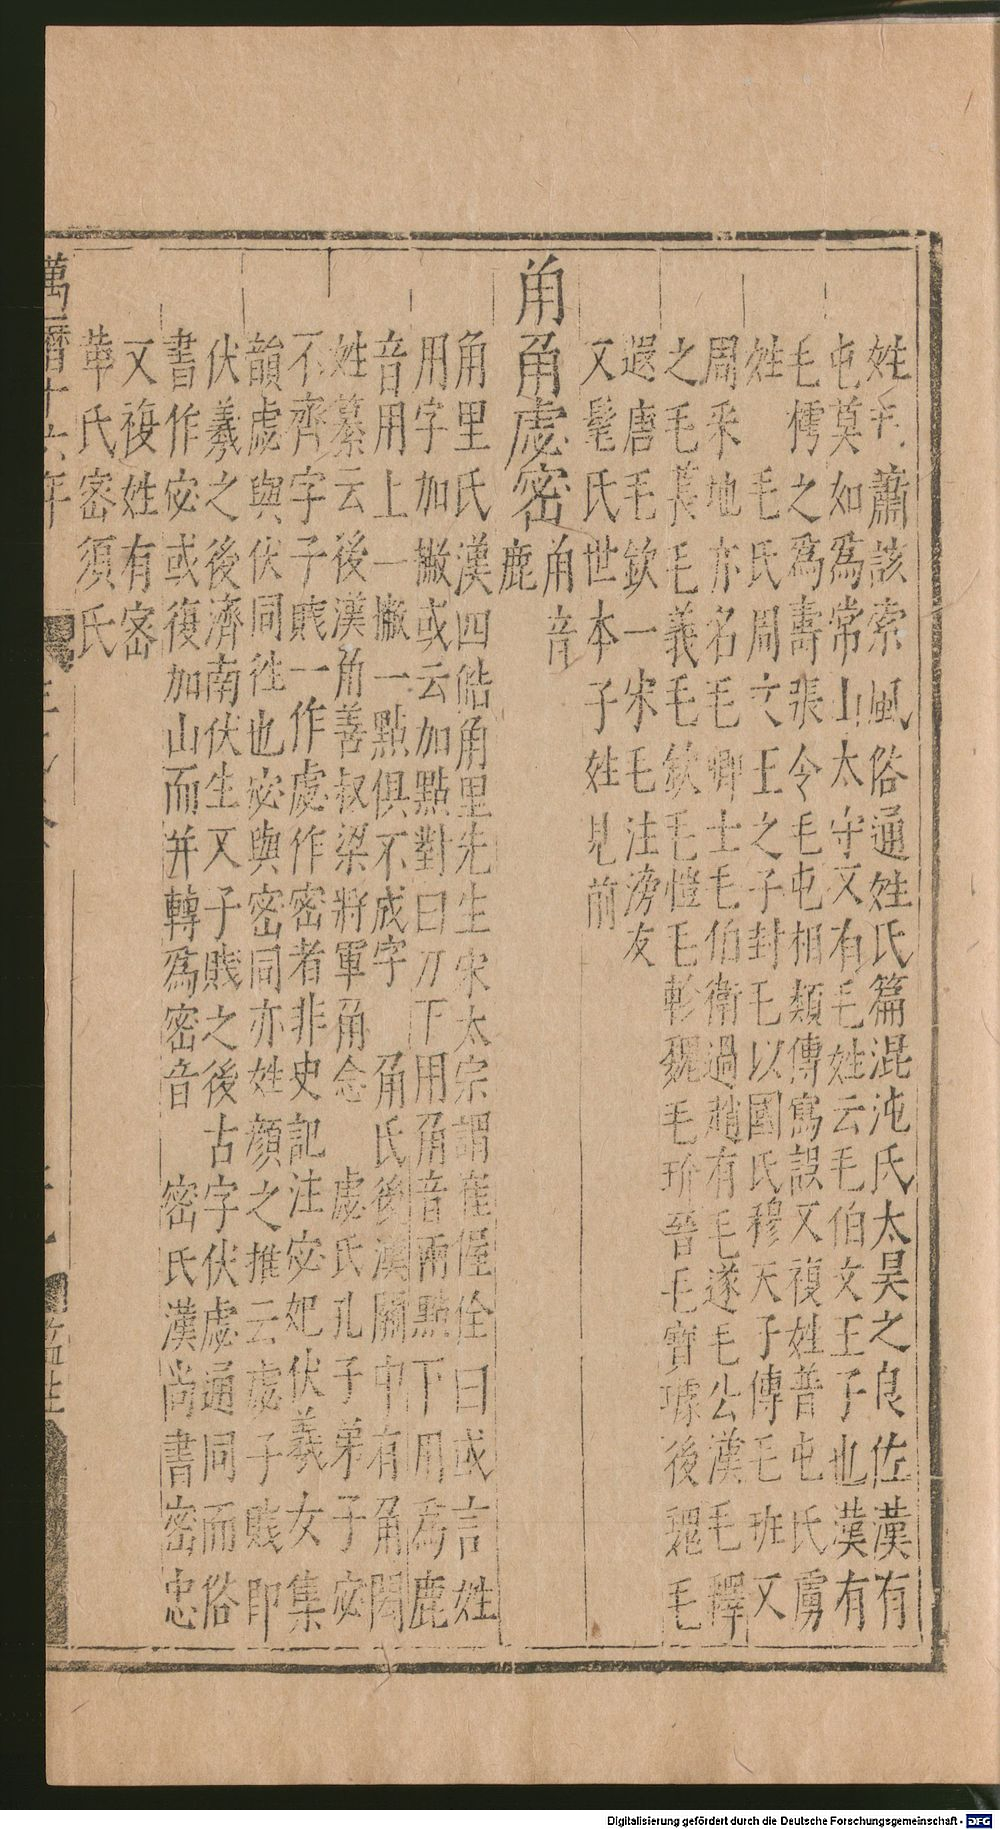 姓毛蕭該索風俗通姓氏篇混沌氏太昊之良佐漢有
屯莫如爲常山太守又有毛姓云毛伯文王子也漢有
毛愕之爲壽張令毛屯相類傳寫誤又複姓普屯氏虜
姓　毛氏周文王之子封毛以國氏穆天子傳毛班又
周釆地亦名毛毛卿士毛伯衛過趙有毛遂毛公漢毛釋
之毛萇毛義毛欽毛愷毛軫魏毛玠晉毛寶璩後魏毛
遐唐毛欽一宋毛注滂友
又髦氏世本子姓見前
甪角虙密甪音鹿
角里氏漢四皓角里先生宋太宗謂崔偓佺曰或言姓
用字加撇或云加點對曰刀下用甪音兩點下用爲鹿
音用上一撇一點俱不成字　甪氏後漢關中有甪閎
姓纂云後漢角善叔梁將軍角念　虙氏孔子弟子宓
不齊字子賤一作虙作密者非史記注宓妃伏羲女集
韻虙與伏同姓也宓與密同亦姓顔之推云虙子賤即
伏羲之後濟南伏生又子賤之後古字伏虙通同而俗
書作宓或復加山而并轉爲密音　密氏漢尚書密忠
又複姓有密
革氏密須氏
萬曆十六年
Digitalisierung gefördert durch die Deutsche Forschungsgemeinschaft - DFG